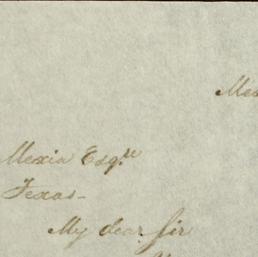 Mexia Esqre
Texas-
My dear Sir